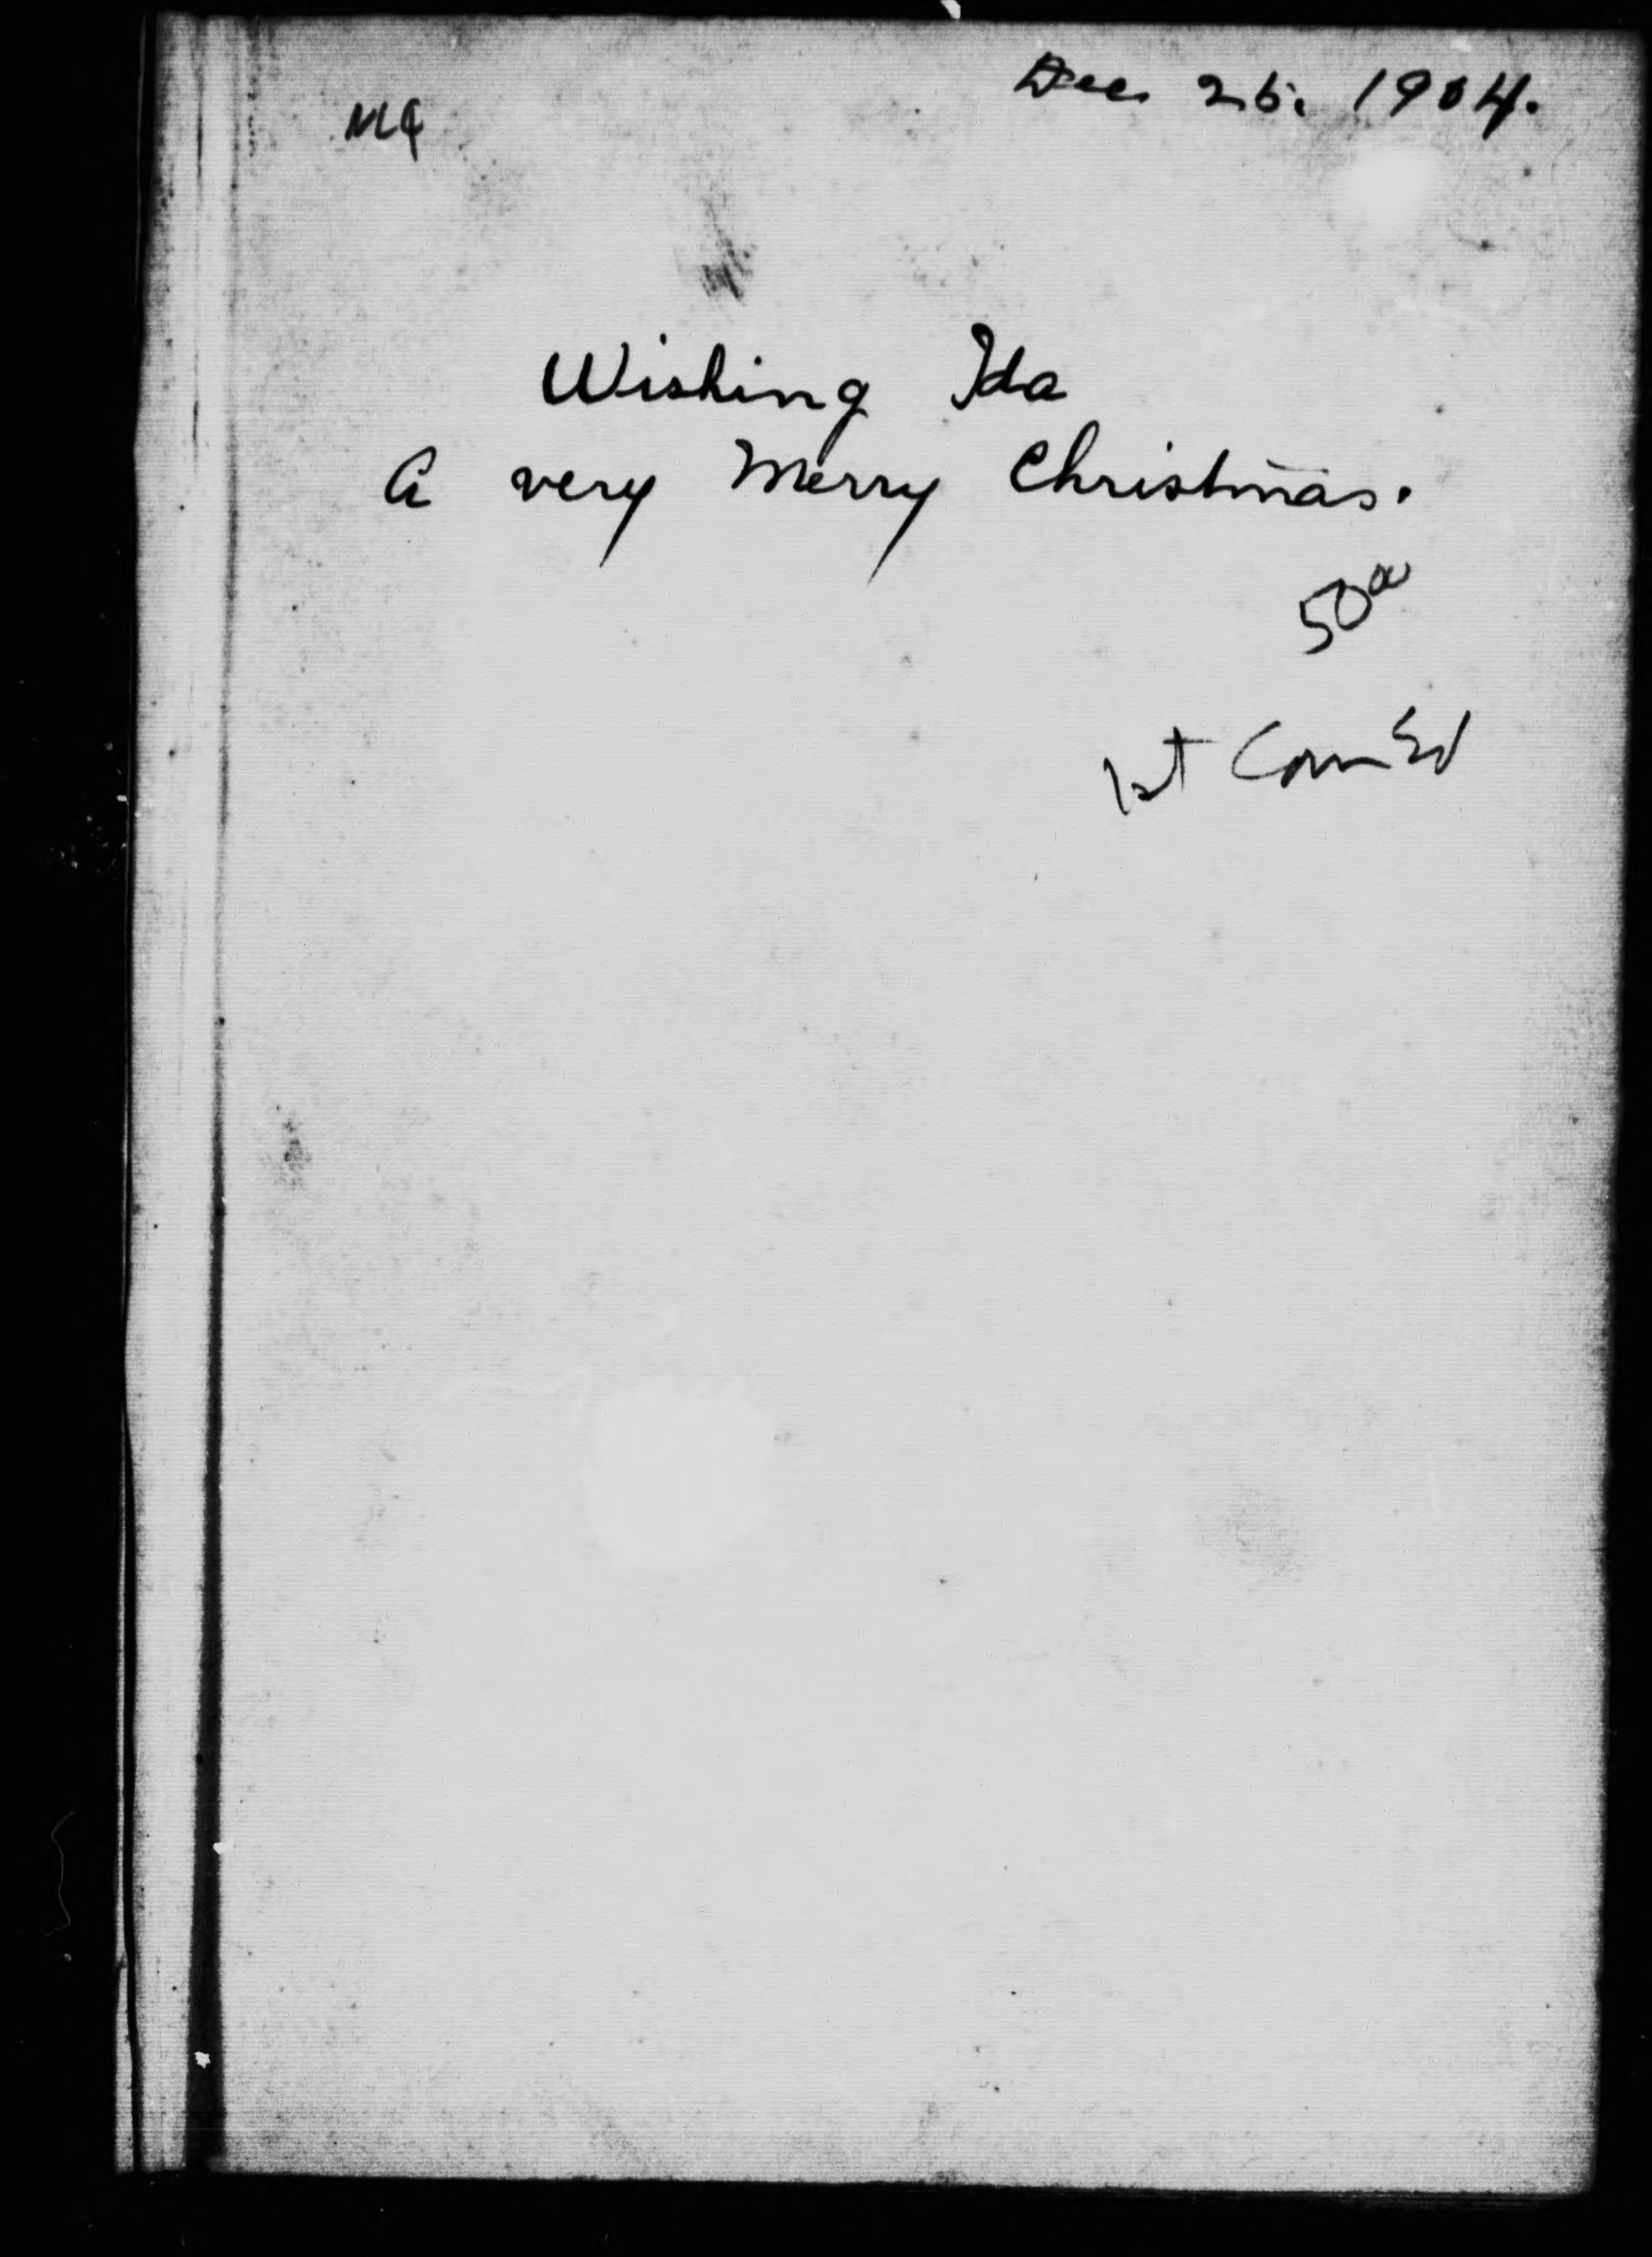 Dec. 25. 1904.
Wishing Ida
A very Merry Christmas.
50 00
1st Can Ed